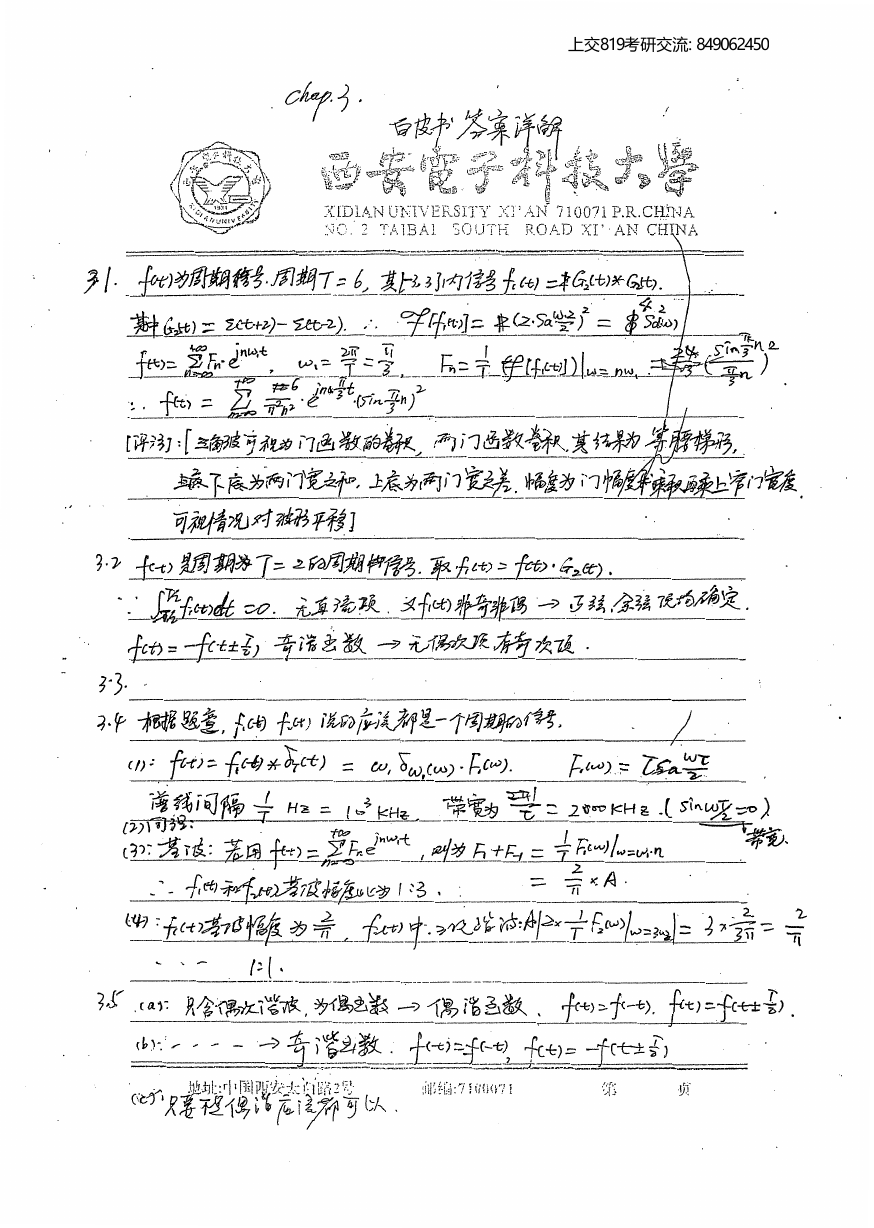 上交819考研交流: 849062450
chap.3.
白皮书 答案详解
西安電子科技大學
XIDIAN UNIVERSITY XI'AN 710071 P.R.CHINA
NO. 2 TAIBAI SOUTH ROAD XI'AN CHINA
3.1. f(t)为周期信号.周期T=6, 其[-3,3]内信号 f₁(t)=G₂(t)*G₂(t).
其中G₂(t)=ε(t+2)-ε(t-2). ∴ ℱ[f₁(t)]=(2·Sa ω·2/2)² = 4Sa²(ω)
f(t)=Σ Fₙ e^{jnω₁t}, ω₁=2π/T=π/3, Fₙ=1/T ℱ[f₁(t)]|ω=nω₁
∴ f(t)=Σ 6/π²n² · e^{jnπ/3 t}·(sin π/3 n)²
[评注]:[三角波可视为门函数的卷积, 两门函数卷积,其结果为等腰梯形,
下底为两门宽之和, 上底为两门宽之差. 幅度为门幅度乘积再乘上窄门宽度
可视情况对波形平移]
3.2 f(t)是周期为T=2的周期信号. 取f₁(t)=f(t)·G₂(t).
∵ ∫f₁(t)dt=0. 无直流项. 又f₁(t)非奇非偶 → 正弦,余弦项均确定.
f(t)=-f(t±T/2) 奇谐函数 → 无偶次项有奇次项.
3.3.
3.4 根据题意, f₁(t) f₂(t) 说的应该都是一个周期的信号.
(1): f(t)=f₁(t)*δ_T(t) = ω₁δ_{ω₁}(ω)·F₁(ω). F₁(ω)=τSa ωτ/2
谱线间隔 1/T Hz = 10³KHz. 带宽为 = 2000KHz.(sin ωτ/2=0)
带宽.
(2)同理:
(3): 基波: 若用f(t)=ΣFₙe^{jnω₁t}, 则为F₁+F₋₁=1/T F₁(ω)|ω=ω₁·n
∴ f₁(t)和f₂(t)基波幅度比为1:3. = 2/π×A.
(4): f₁(t)基波幅度为2/π, f₂(t)中三次谐波:A|2×1/T F₂(ω)|ω=3ω₂|=3×2/3π=2/π
... 1:1.
3.5 (a): 只含偶次谐波,为偶函数 → 偶谐函数. f(t)=f(-t). f(t)=f(t±T/2).
(b): ---- → 奇谐函数. f(t)=f(-t), f(t)=-f(t±T/2)
地址:中国西安太白路2号 邮编:7100071 第 页
(c): 只要是偶谐应该都可以.